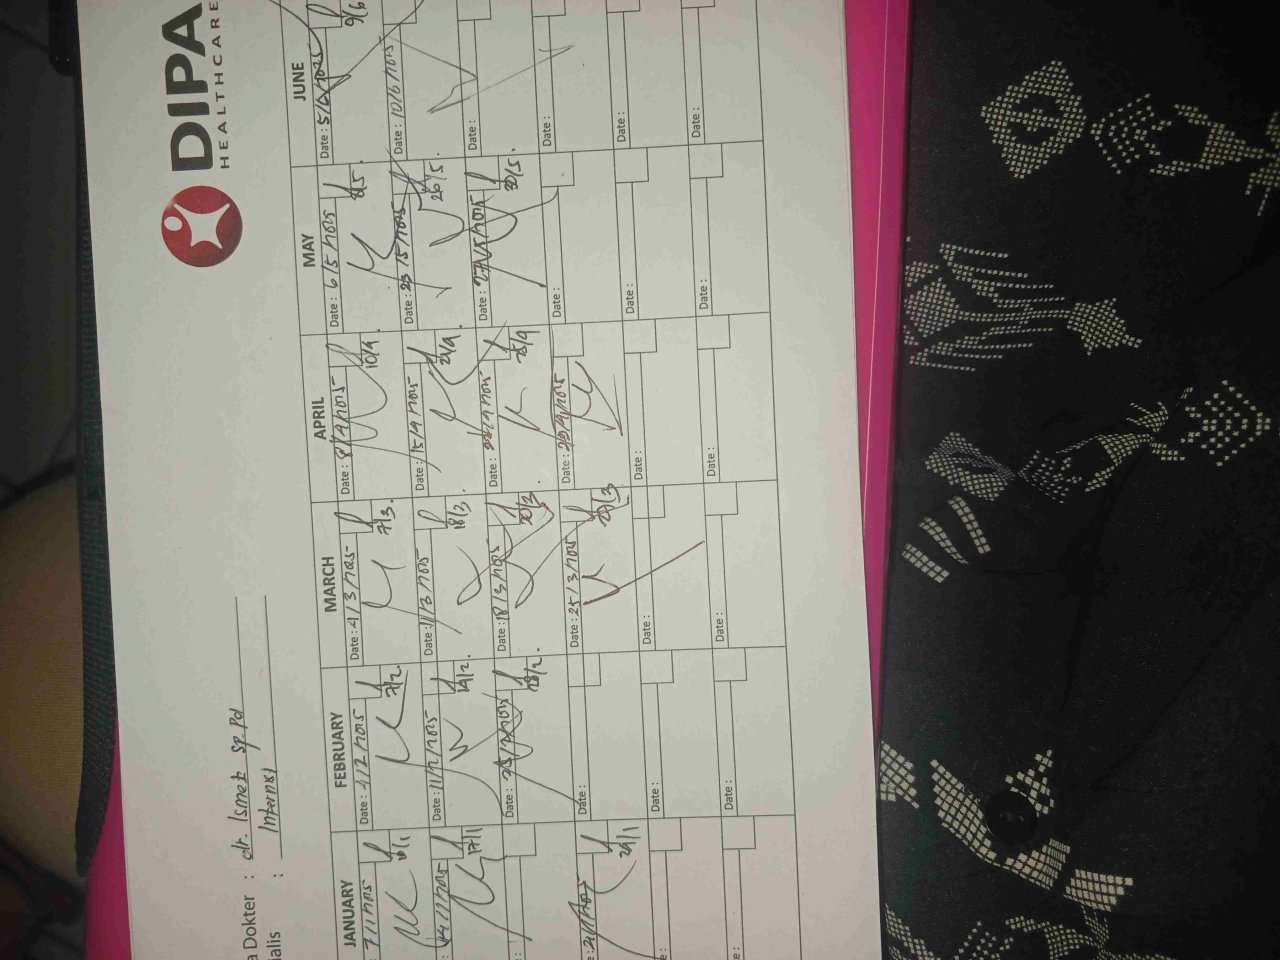 DIPA
HEALTHCARE
a Dokter : dr. Ismet Sp.Pd
ialis : Internist
JANUARY FEBRUARY MARCH APRIL MAY JUNE
7/1/2025 Date: 4/2/2025 Date: 4/3/2025 Date: 8/4/2025 Date: 6/5/2025 Date: 5/6/2025
7/2. 7/3. 10/4. 8/5. 9/6
14/1/2025 Date: 11/2/2025 Date: 11/3/2025 Date: 15/4/2025 Date: /5/2025 Date: 10/6/2025
17/1 14/2. 18/3. 26/5.
Date: /2025 Date: 18/3/2025 Date: /4/2025 Date: 27/5/2025 Date:
28/2. 20/3 25/4 30/5.
Date: Date: 25/3/2025 Date: 29/4/2025 Date: Date:
24/1 27/3
e: Date: Date: Date: Date: Date:
e: Date: Date: Date: Date: Date: